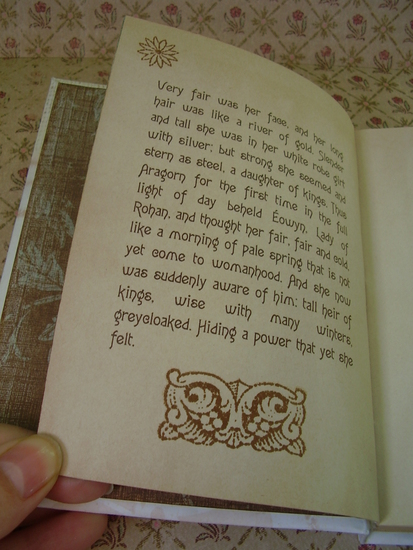 Very fair was her face, and her long
hair was like a river of gold. Slender
and tall she was in her white robe girt
with silver; but strong she seemed and
stern as steel, a daughter of kings. Thus
Aragorn for the first time in the full
light of day beheld Éowyn, Lady of
Rohan, and thought her fair, fair and cold,
like a morning of pale spring that is not
yet come to womanhood. And she now
was suddenly aware of him: tall heir of
kings, wise with many winters,
greycloaked. Hiding a power that yet she
felt.